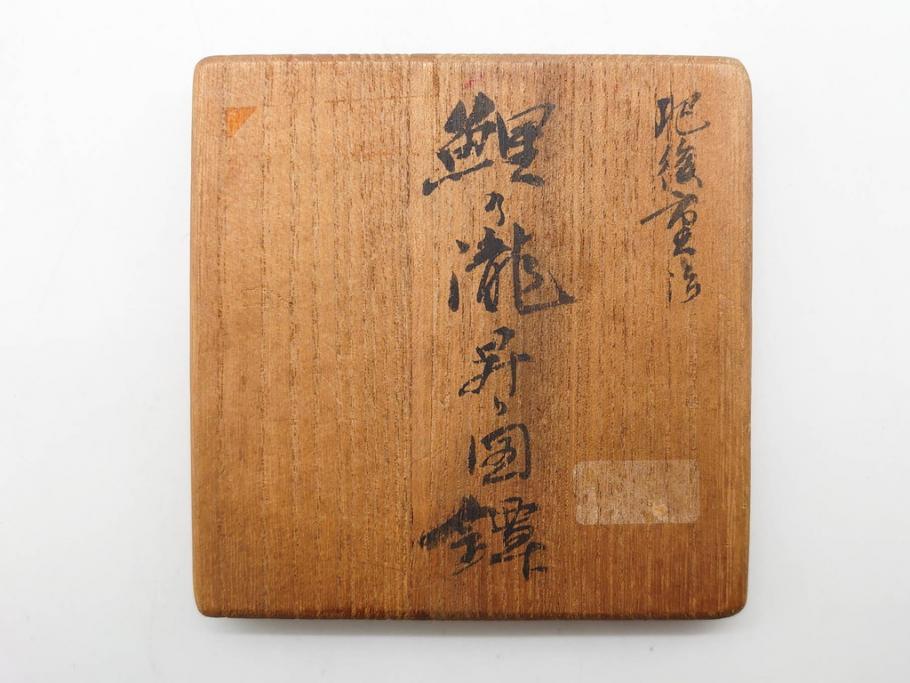 肥後重治
鯉乃瀧昇り図鐔